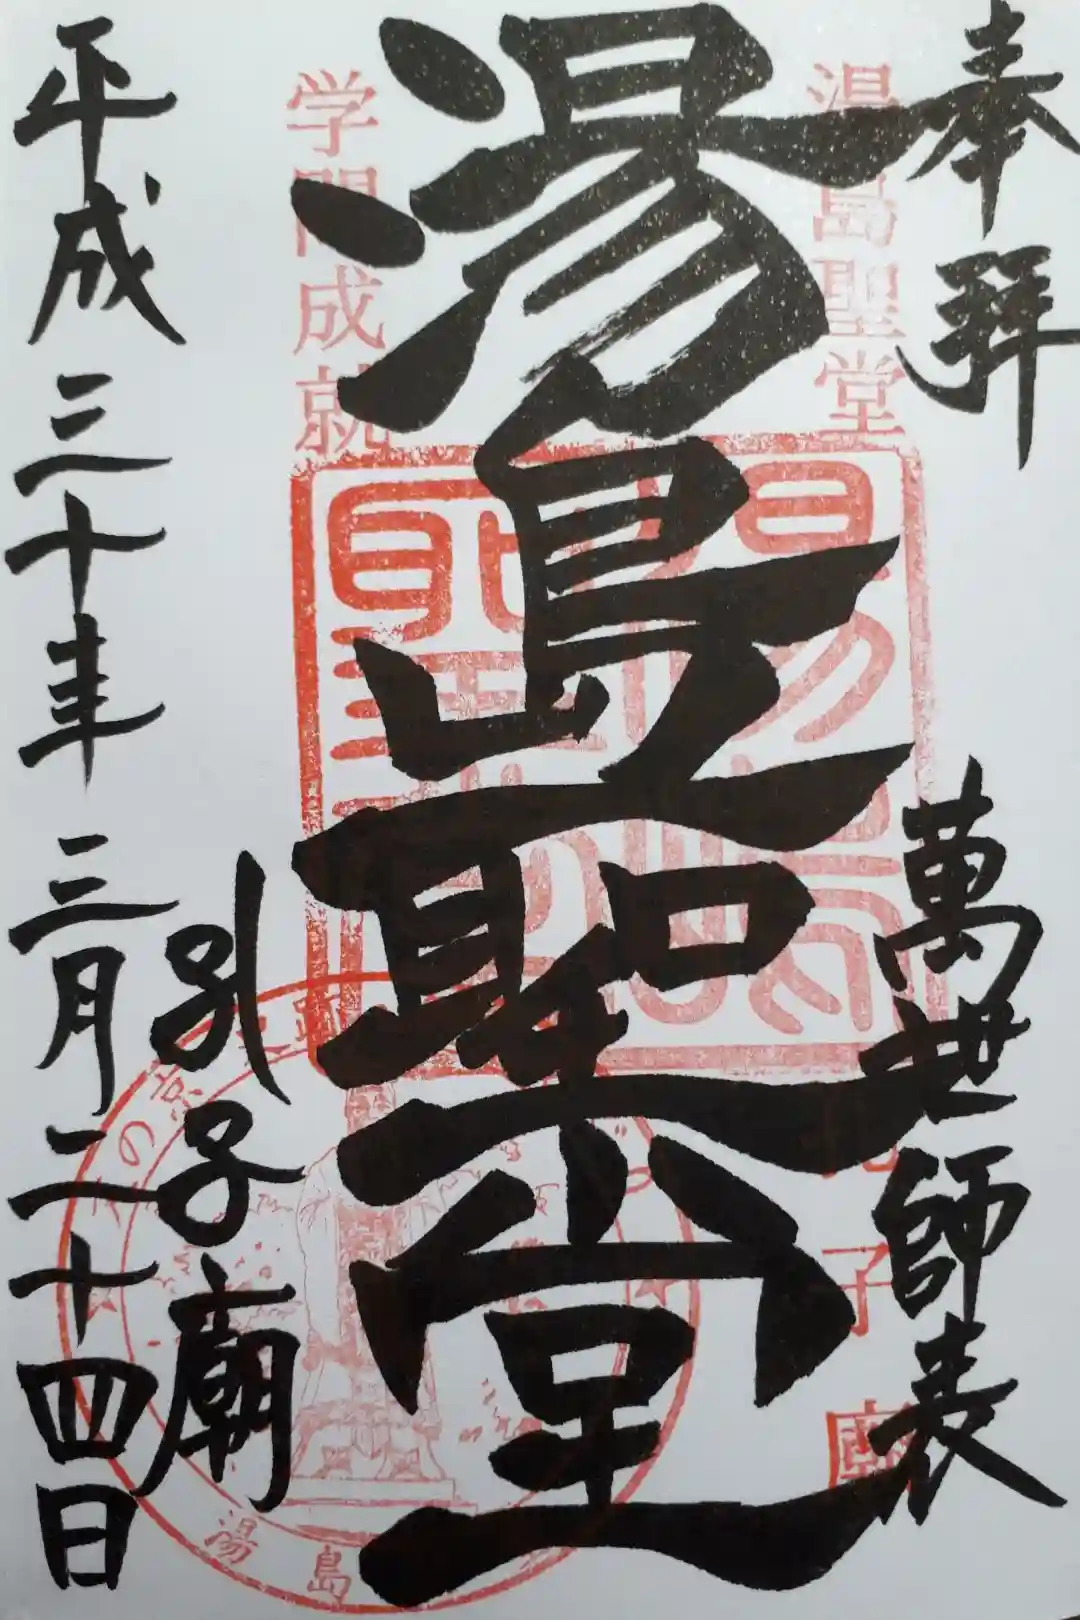 奉拜
萬世師表
湯島聖堂
湯島聖堂
学問成就
孔子廟
平成三十年三月二十四日
湯島聖
孔子廟
湯島